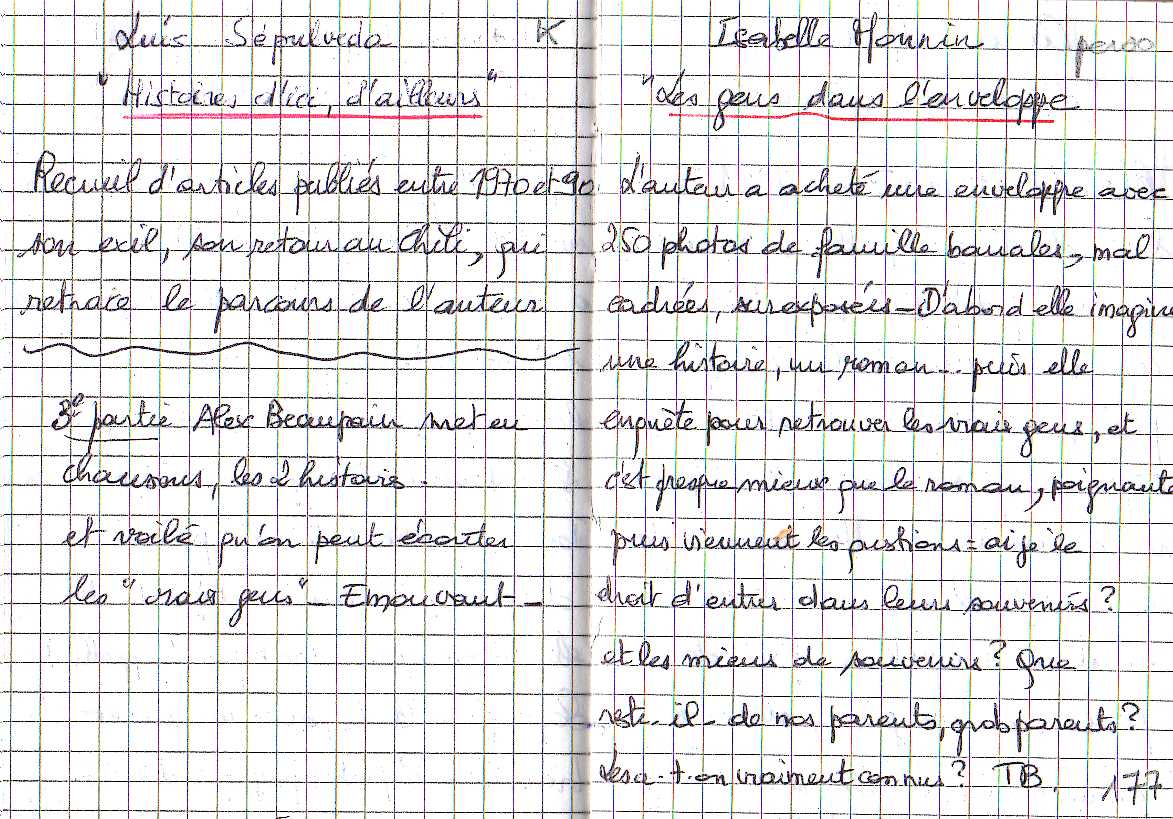 Luis Sépulveda K
"Histoires d'ici, d'ailleurs"
Recueil d'articles publiés entre 1970 et 90
son exil, son retour au Chili, qui
retrace le parcours de l'auteur
3e partie Alex Beaupain met en
chansons, les 2 histoires.
et voilà qu'on peut écouter
les "vrais gens" - Emouvant -
Isabelle Monnin perso
"Les gens dans l'enveloppe
L'auteur a acheté une enveloppe avec
250 photos de famille banales, mal
cadrées, surexposées - D'abord elle imagine
une histoire, un roman... puis elle
enquête pour retrouver les vrais gens, et
c'est presque mieux que le roman, poignant
puis viennent les questions = ai je le
droit d'entrer dans leurs souvenirs ?
et les miens de souvenirs ? Que
reste-il- de nos parents, grds parents ?
Les a-t-on vraiment connus ? TB.
177